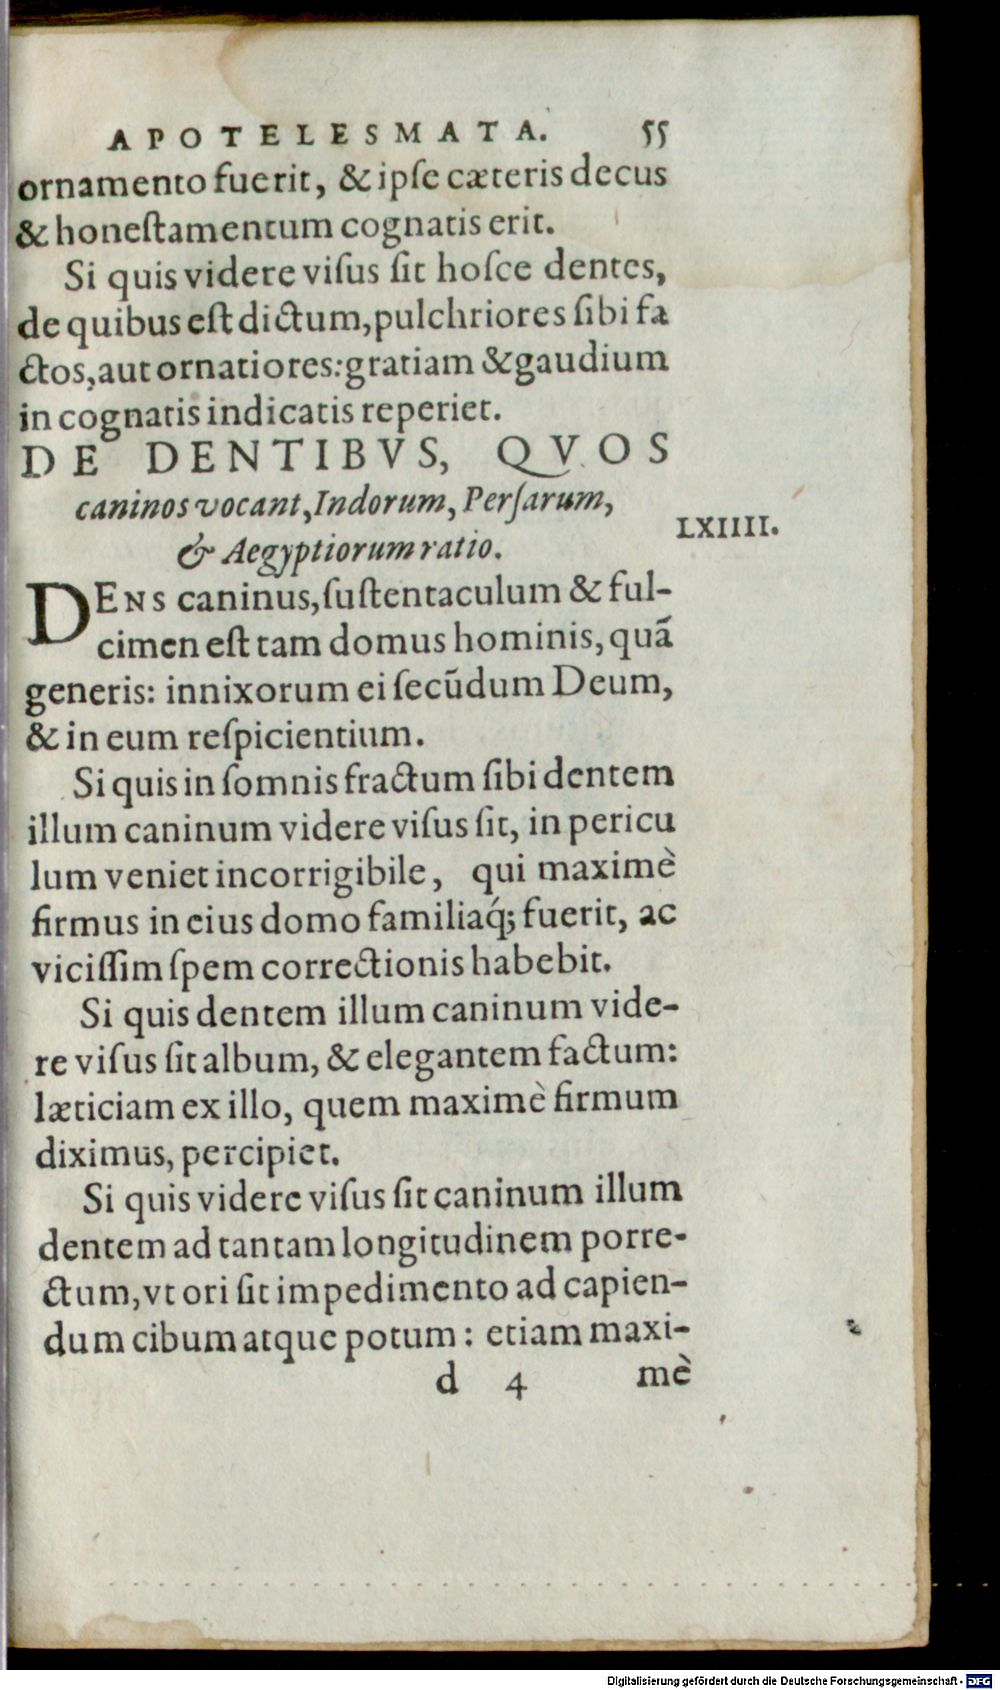 APOTELESMATA. 55
ornamento fuerit, & ipſe cæteris decus
& honeſtamentum cognatis erit.
Si quis videre viſus ſit hoſce dentes,
de quibus eſt dictum, pulchriores ſibi fa
ctos, aut ornatiores: gratiam & gaudium
in cognatis indicatis reperiet.
DE DENTIBVS, QVOS
caninos vocant, Indorum, Perſarum,
& Aegyptiorum ratio.
LXIIII.
DENS caninus, ſuſtentaculum & ful-
cimen eſt tam domus hominis, quã
generis: innixorum ei ſecũdum Deum,
& in eum reſpicientium.
Si quis in ſomnis fractum ſibi dentem
illum caninum videre viſus ſit, in pericu
lum veniet incorrigibile, qui maximè
firmus in eius domo familiaq́; fuerit, ac
viciſſim ſpem correctionis habebit.
Si quis dentem illum caninum vide-
re viſus ſit album, & elegantem factum:
læticiam ex illo, quem maximè firmum
diximus, percipiet.
Si quis videre viſus ſit caninum illum
dentem ad tantam longitudinem porre-
ctum, vt ori ſit impedimento ad capien-
dum cibum atque potum: etiam maxi-
d 4 mè
Digitalisierung gefördert durch die Deutsche Forschungsgemeinschaft - DFG